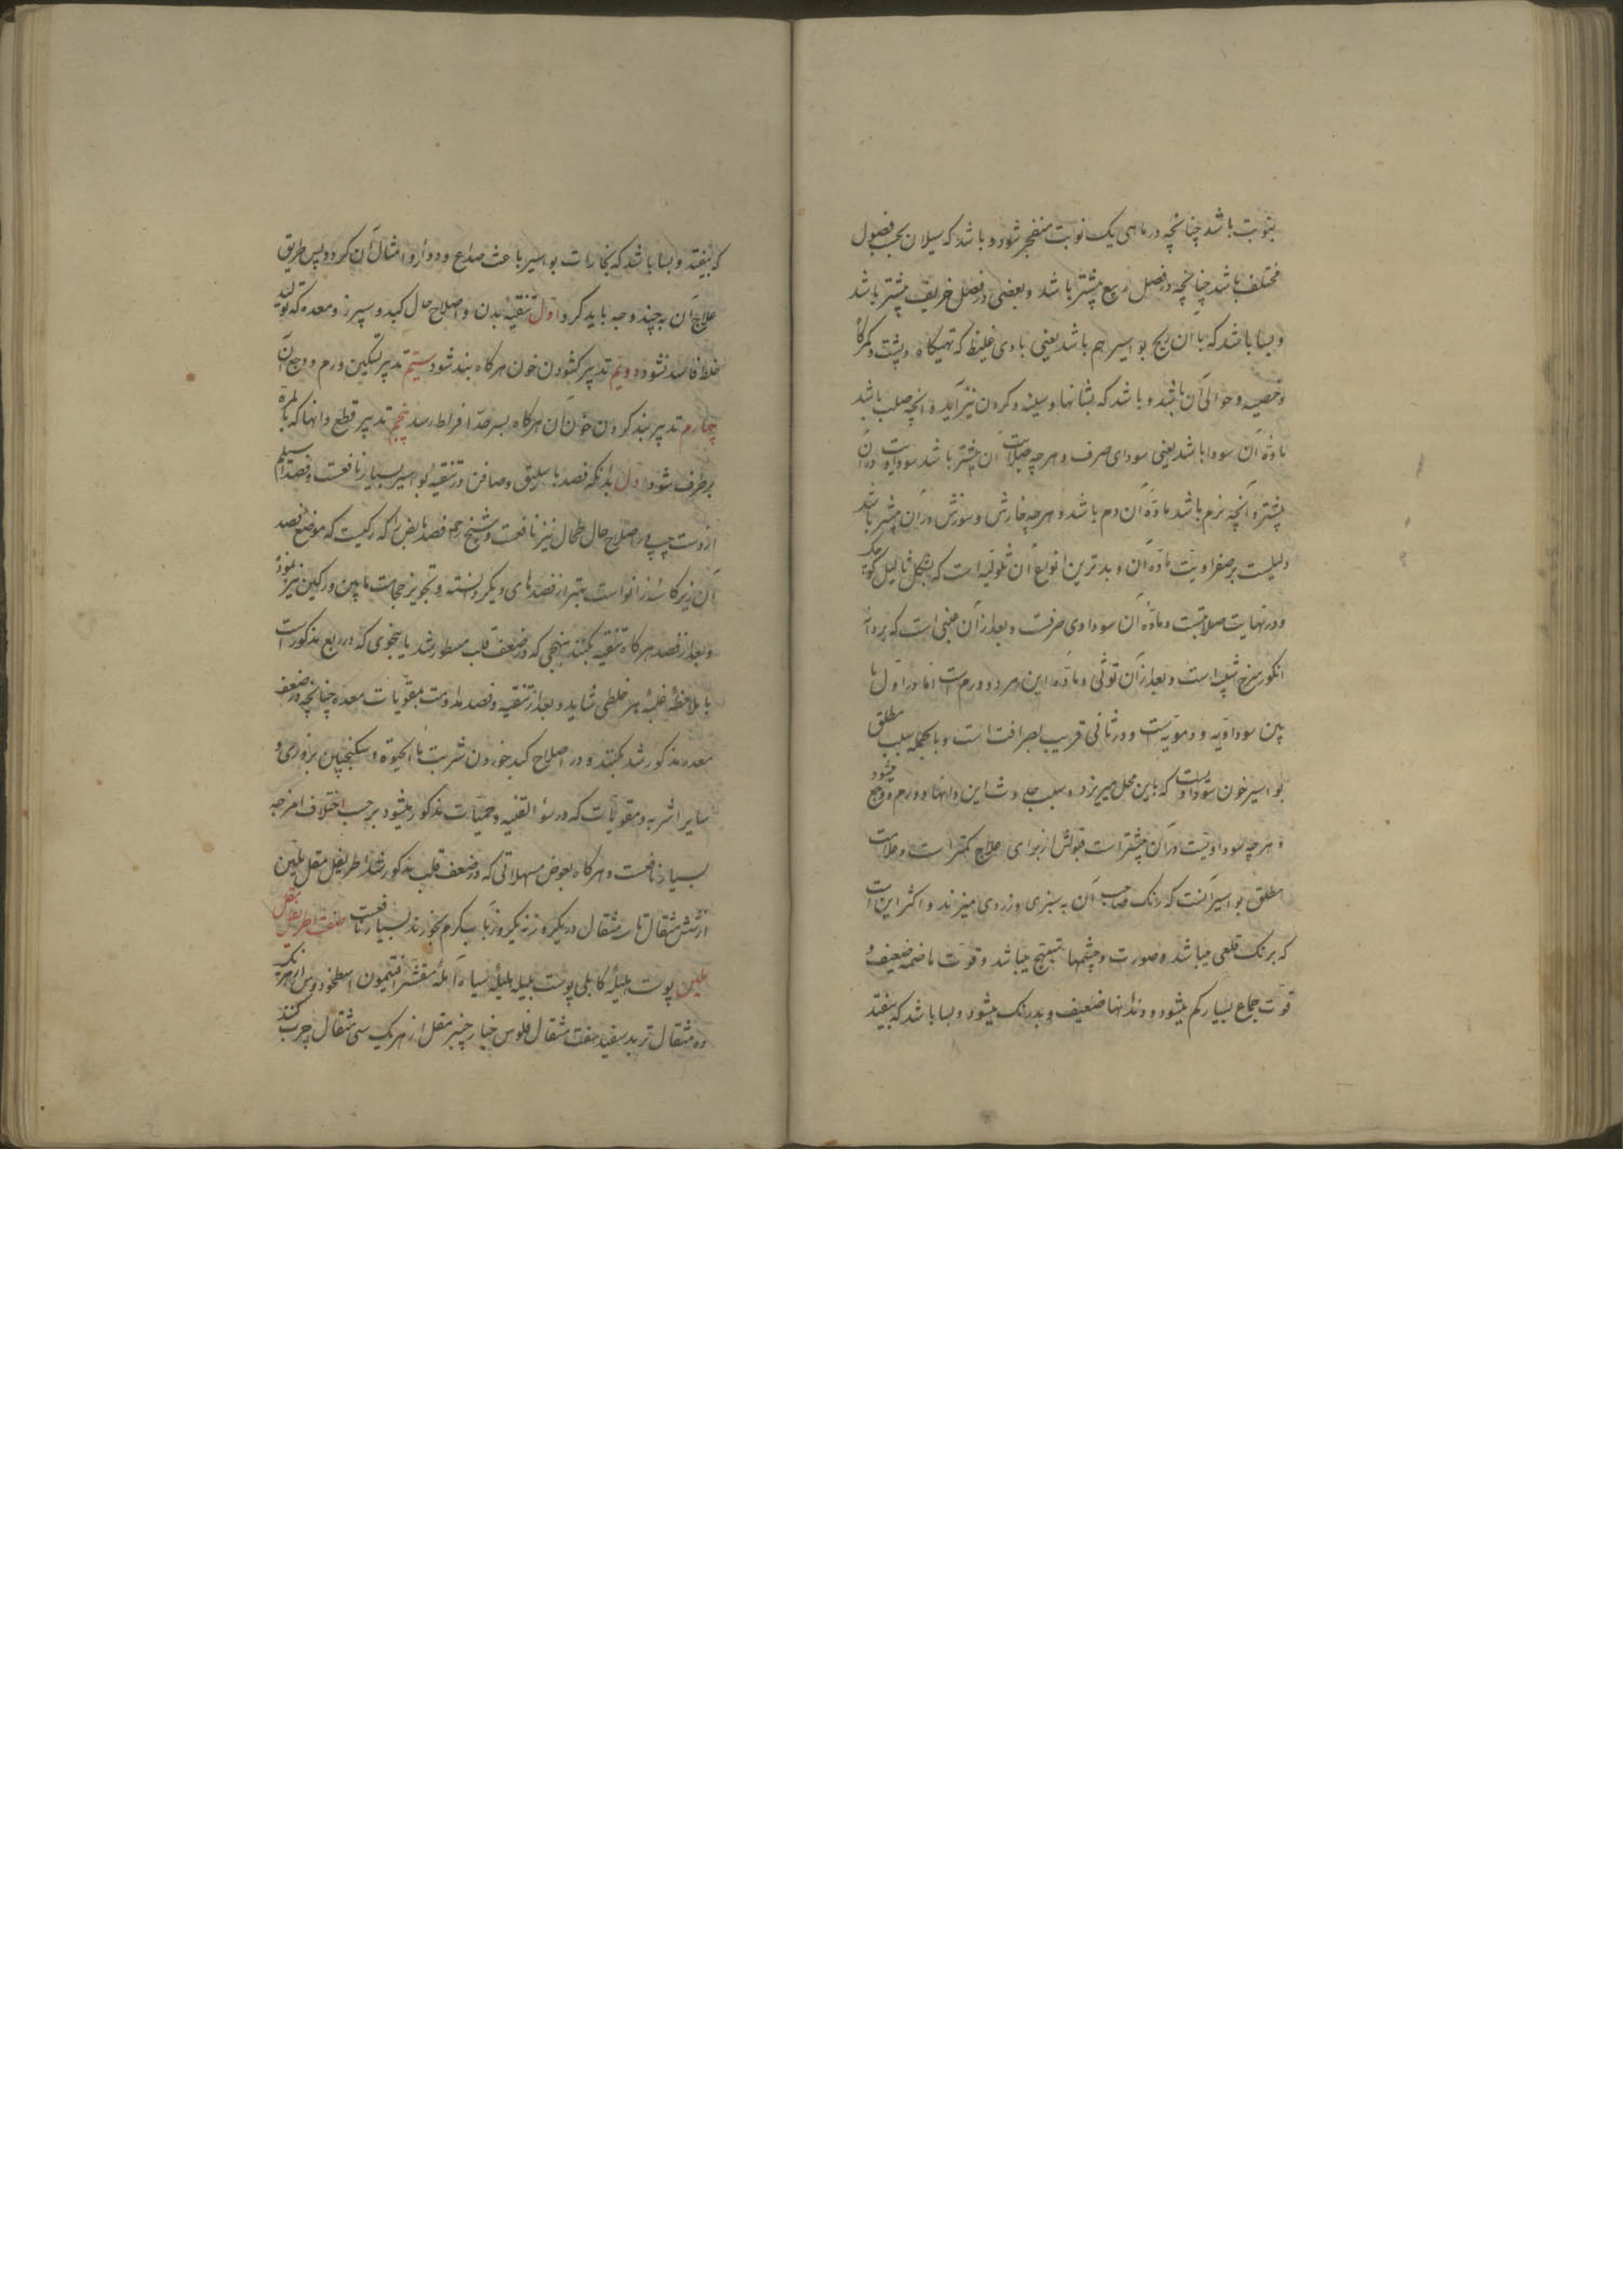 بنوبت باشد چنانچه در ماهی یک نوبت منفجر شود و باشد که سیلان بحسب فصول
مختلف باشد چنانچه در فصل ربیع بیشتر باشد و بعضی در فصل خریف بیشتر باشد
و بسا باشد که با آن ریح بواسیر هم باشد یعنی بادی غلیظ که تهیگاه و پشت و کمرگاه
و خصیه و حوالی آن باشد و باشد که بشانها و سینه و گردن نیز آید و آنچه صلب باشد
ماده آن سودا باشد یعنی سودای صرف و هر چه صلابت آن بیشتر باشد سوداویت ماده آن
بیشتر و آنچه نرم باشد ماده آن دم باشد و هر چه خارش و سوزش در آن بیشتر باشد
دلیلست بر صفراویت ماده آن و بدترین انواع آن ثؤلولیه است که بشکل ثالیل کوچک
و در نهایت صلابتست و ماده آن سوداوی صرفست و بعد از آن عنبی است که بر دانه
انکور سرخ شبیه است و بعد از آن توثی و ماده این هر دو ورم است اما در اول ما
بین سوداویه و دمویه است و در ثانی قریب بصرافت است و بالجمله سبب مطلق
بواسیر خون سوداویست که باین محل میریزد و سبب وجع و ورم میشود
و هر چه سوداویت در آن بیشتر است قبولش از برای علاج کمتر است و علامت
مطلق بواسیر آنست که رنک صاحب آن به سبزی و زردی میزند و اکثر این است
که برنک قلعی میباشد و صورت و چشمها متهیج میباشد و قوت هاضمه ضعیف و
قوت جماع بسیار کم میشود و دندانها ضعیف و بدرنک میشود و بسا باشد که بیفتد
که بیفتد و بسا باشد که بخارات بواسیر باعث صداع و دوار و امثال آن کردد پس طریق
علاج آن به چند وجه باید کرد اول تنقیه بدن و اصلاح حال کبد و سپرز و معده که تولید
خلط فاسد نشود دویم تدبیر کشودن خون هرکاه بند شود سیم تدبیر تسکین ورم و وجع آن
چهارم تدبیر بند کردن خون آن هرکاه بسرحد افراط رسد پنجم تدبیر قطع دانها که بالمره
برطرف شود اول بدانکه فصد باسلیق و صافن در تنقیه بواسیر بسیار نافعست و فصد اسیلم
از دست چپ در اصلاح حال طحال نیز نافعست و شیخ رحمه فصد مابض را که رکیست که موضع فصد
آن زیر کاسه زانو است بهتر از فصدهای دیکر دانسته و تجویز حجامت مابین ورکین نیز نموده
و بعد از فصد هرکاه تنقیه بکنند بنهجی که در ضعف قلب مسطور شد یا بنحوی که در ربع مذکور است
با ملاحظه غلبه هر خلطی شاید و بعد از تنقیه و فصد مداومت بمقویات معده چنانچه در ضعف
معده مذکور شد بکنند و در اصلاح کبد خوردن شربت ماء الحیوة و سکنجبین بزوری و
سایر اشربه و مقویات که در سوء القنیه و حمیات مذکور میشود بر حسب اختلاف امزجه
بسیار نافعست و هرکاه بعوض مسهلاتی که در ضعف قلب مذکور شد اطریفل مقل ملین
از شش مثقال تا نه مثقال در یکروز نه یکروز باب گرم بخورند بسیار نافعست صنعت اطریفل مقل
ملین پوست هلیله کابلی پوست بلیله هلیله سیاه آمله مقشر افتیمون اسطخودوس از هریک
ده مثقال تربد سفید هفت مثقال فلوس خیار چنبر مقل از هر یک سی مثقال چرب کنند